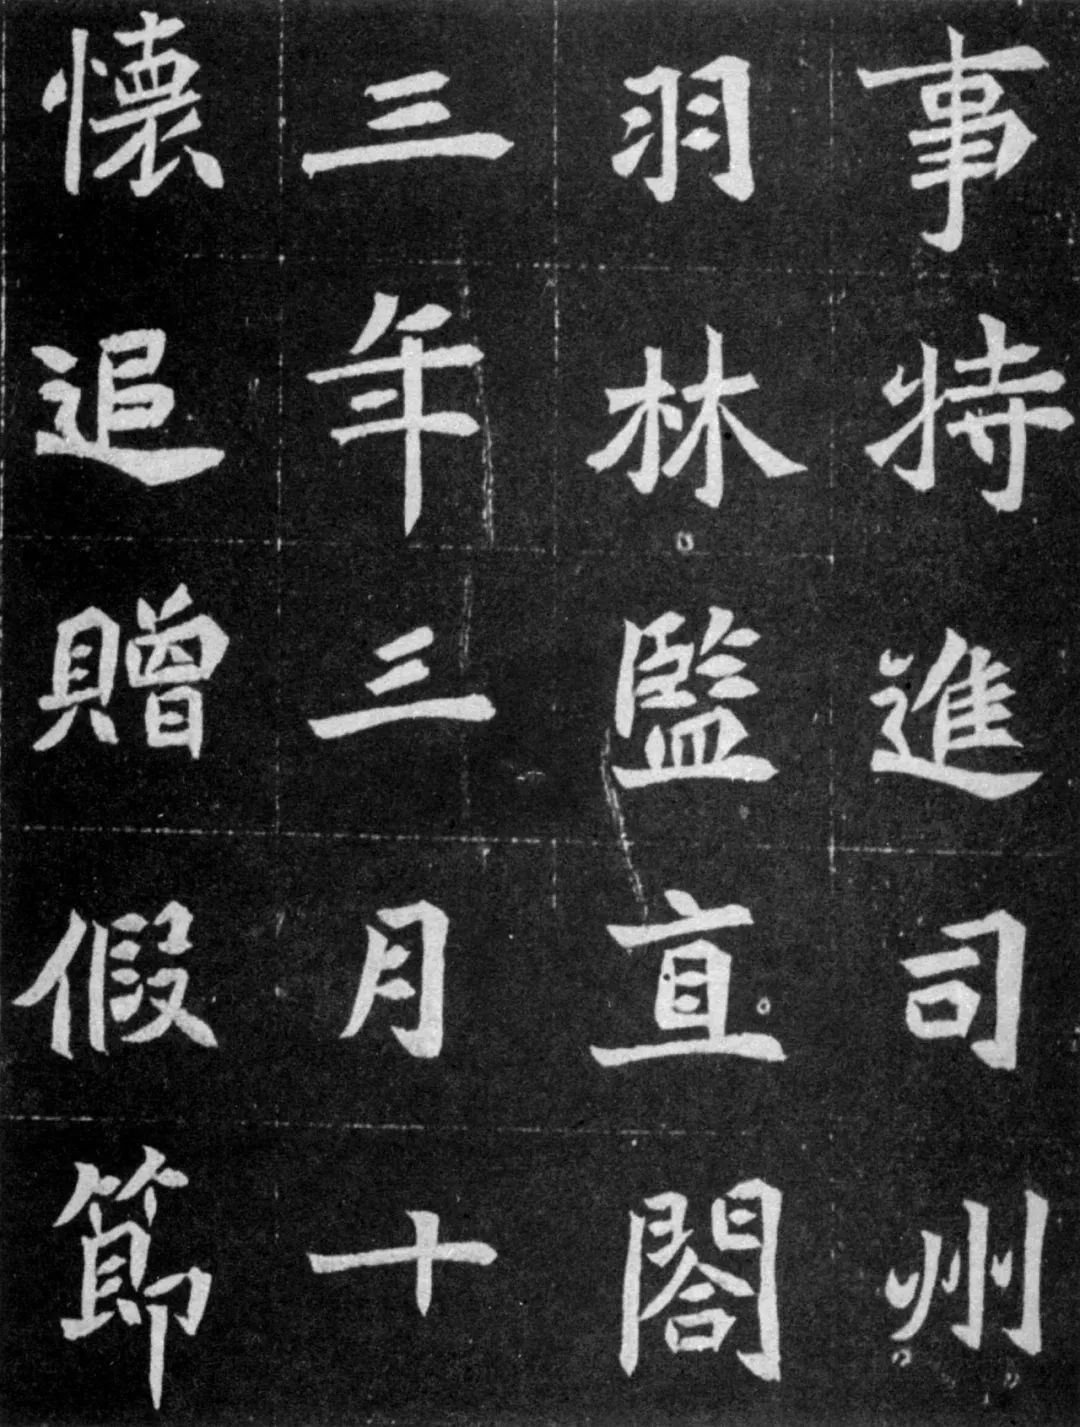 事特進司州
羽林監直閤
三年三月十
懷追贈假節